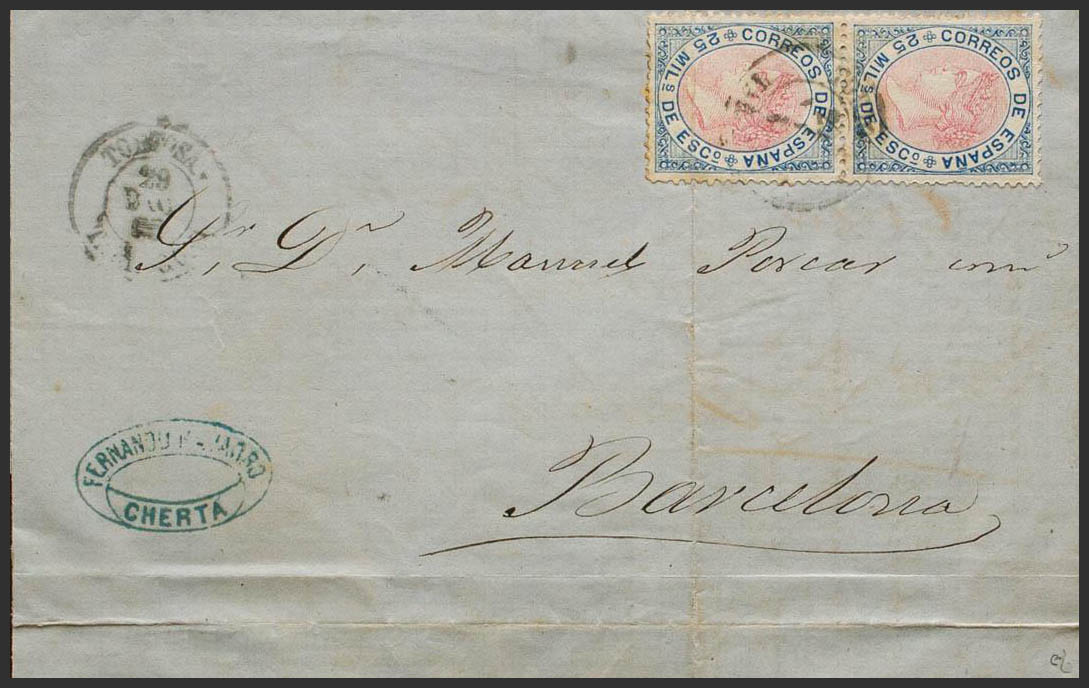 CORREOS DE ESPAÑA
25 MILS DE ESCO
CORREOS DE ESPAÑA
25 MILS DE ESCO
TORTOSA
29
Sr. Dn. Manuel Porcar
Barcelona
FERNANDO
CHERTA